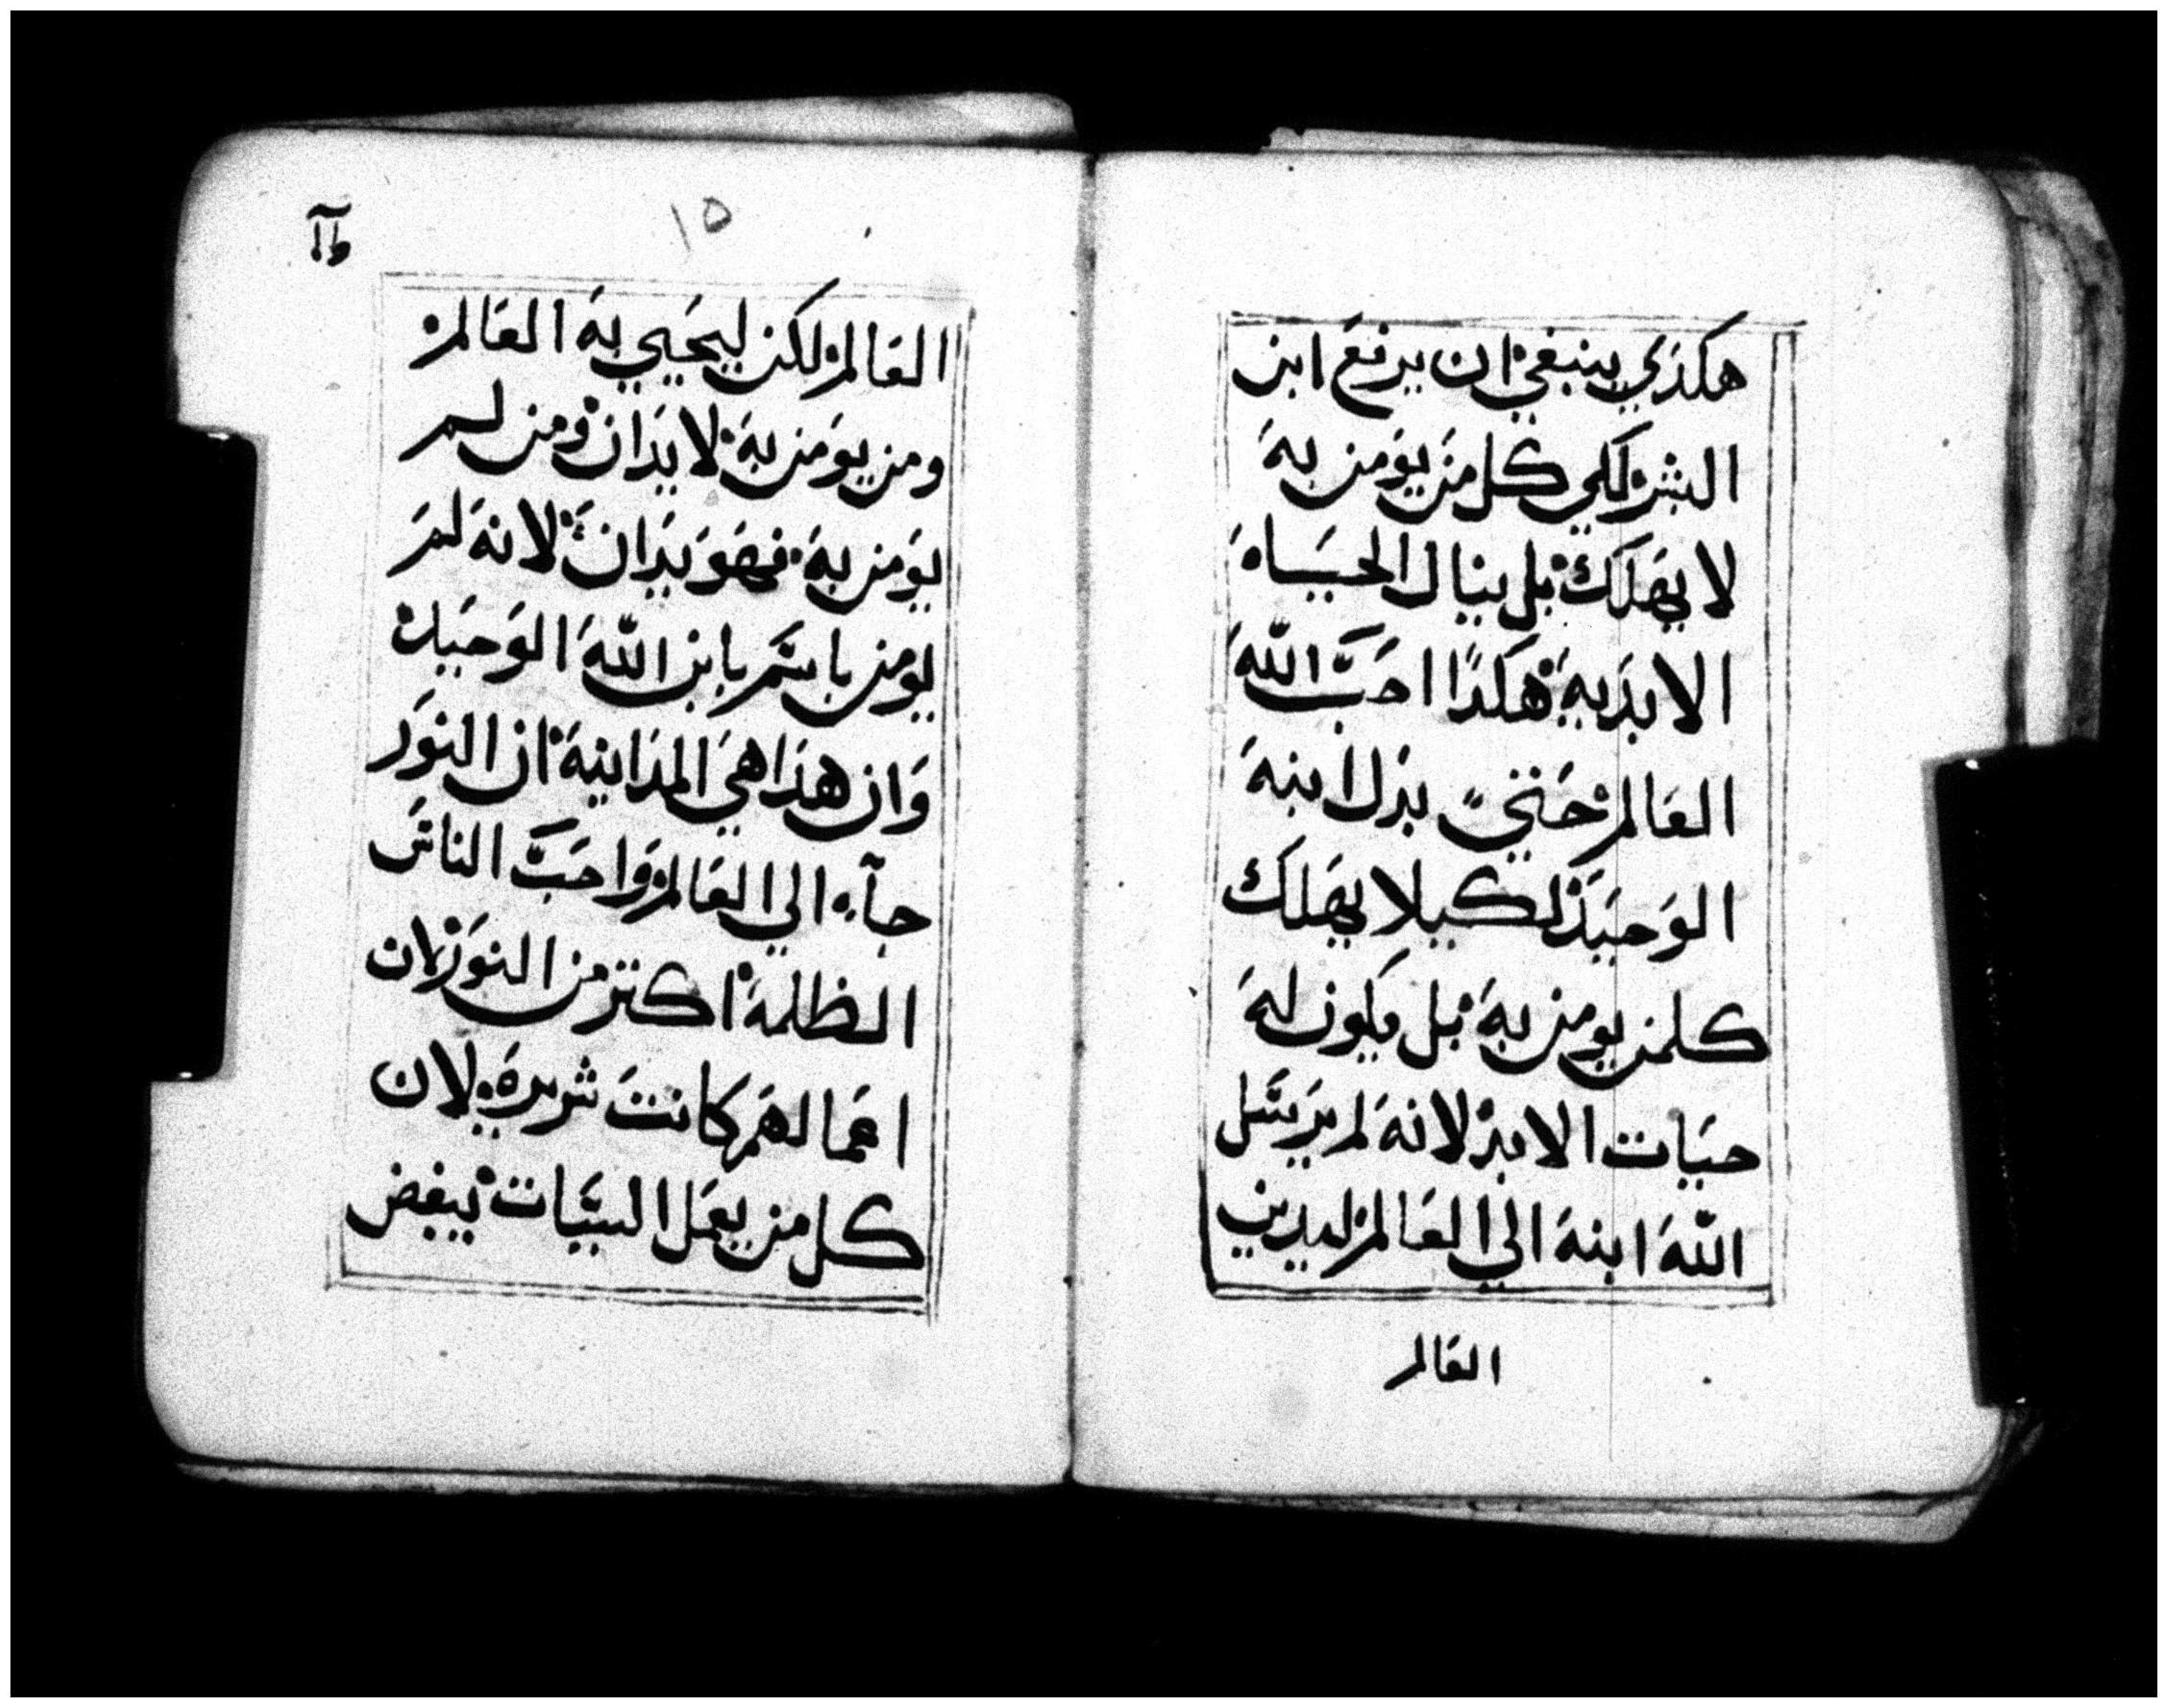 هكذي ينبغي ان يرفع ابن
البشر لكي كل من يومن به
لا يهلك بل ينال الحياه
الابديه هكذا احب الله
العالم حتي بدل ابنه
الوحيد لكيلا يهلك
كلمن يومن به بل يكون له
حيات الابد لانه لم يرسل
الله ابنه الي العالم ليدين
العالم
١٥
العالم لكن ليحيي به العالم
ومن يومن به لا يدان ومن لم
يومن به فهو يدان لانه لم
يومن باسم بابن الله الوحيد
وان هذا هي المداينة ان النور
جآء الي العالم واحب الناس
الظلمة اكتر من النور لان
اعمالهم كانت شريره لان
كل من يعمل السيات يبغض